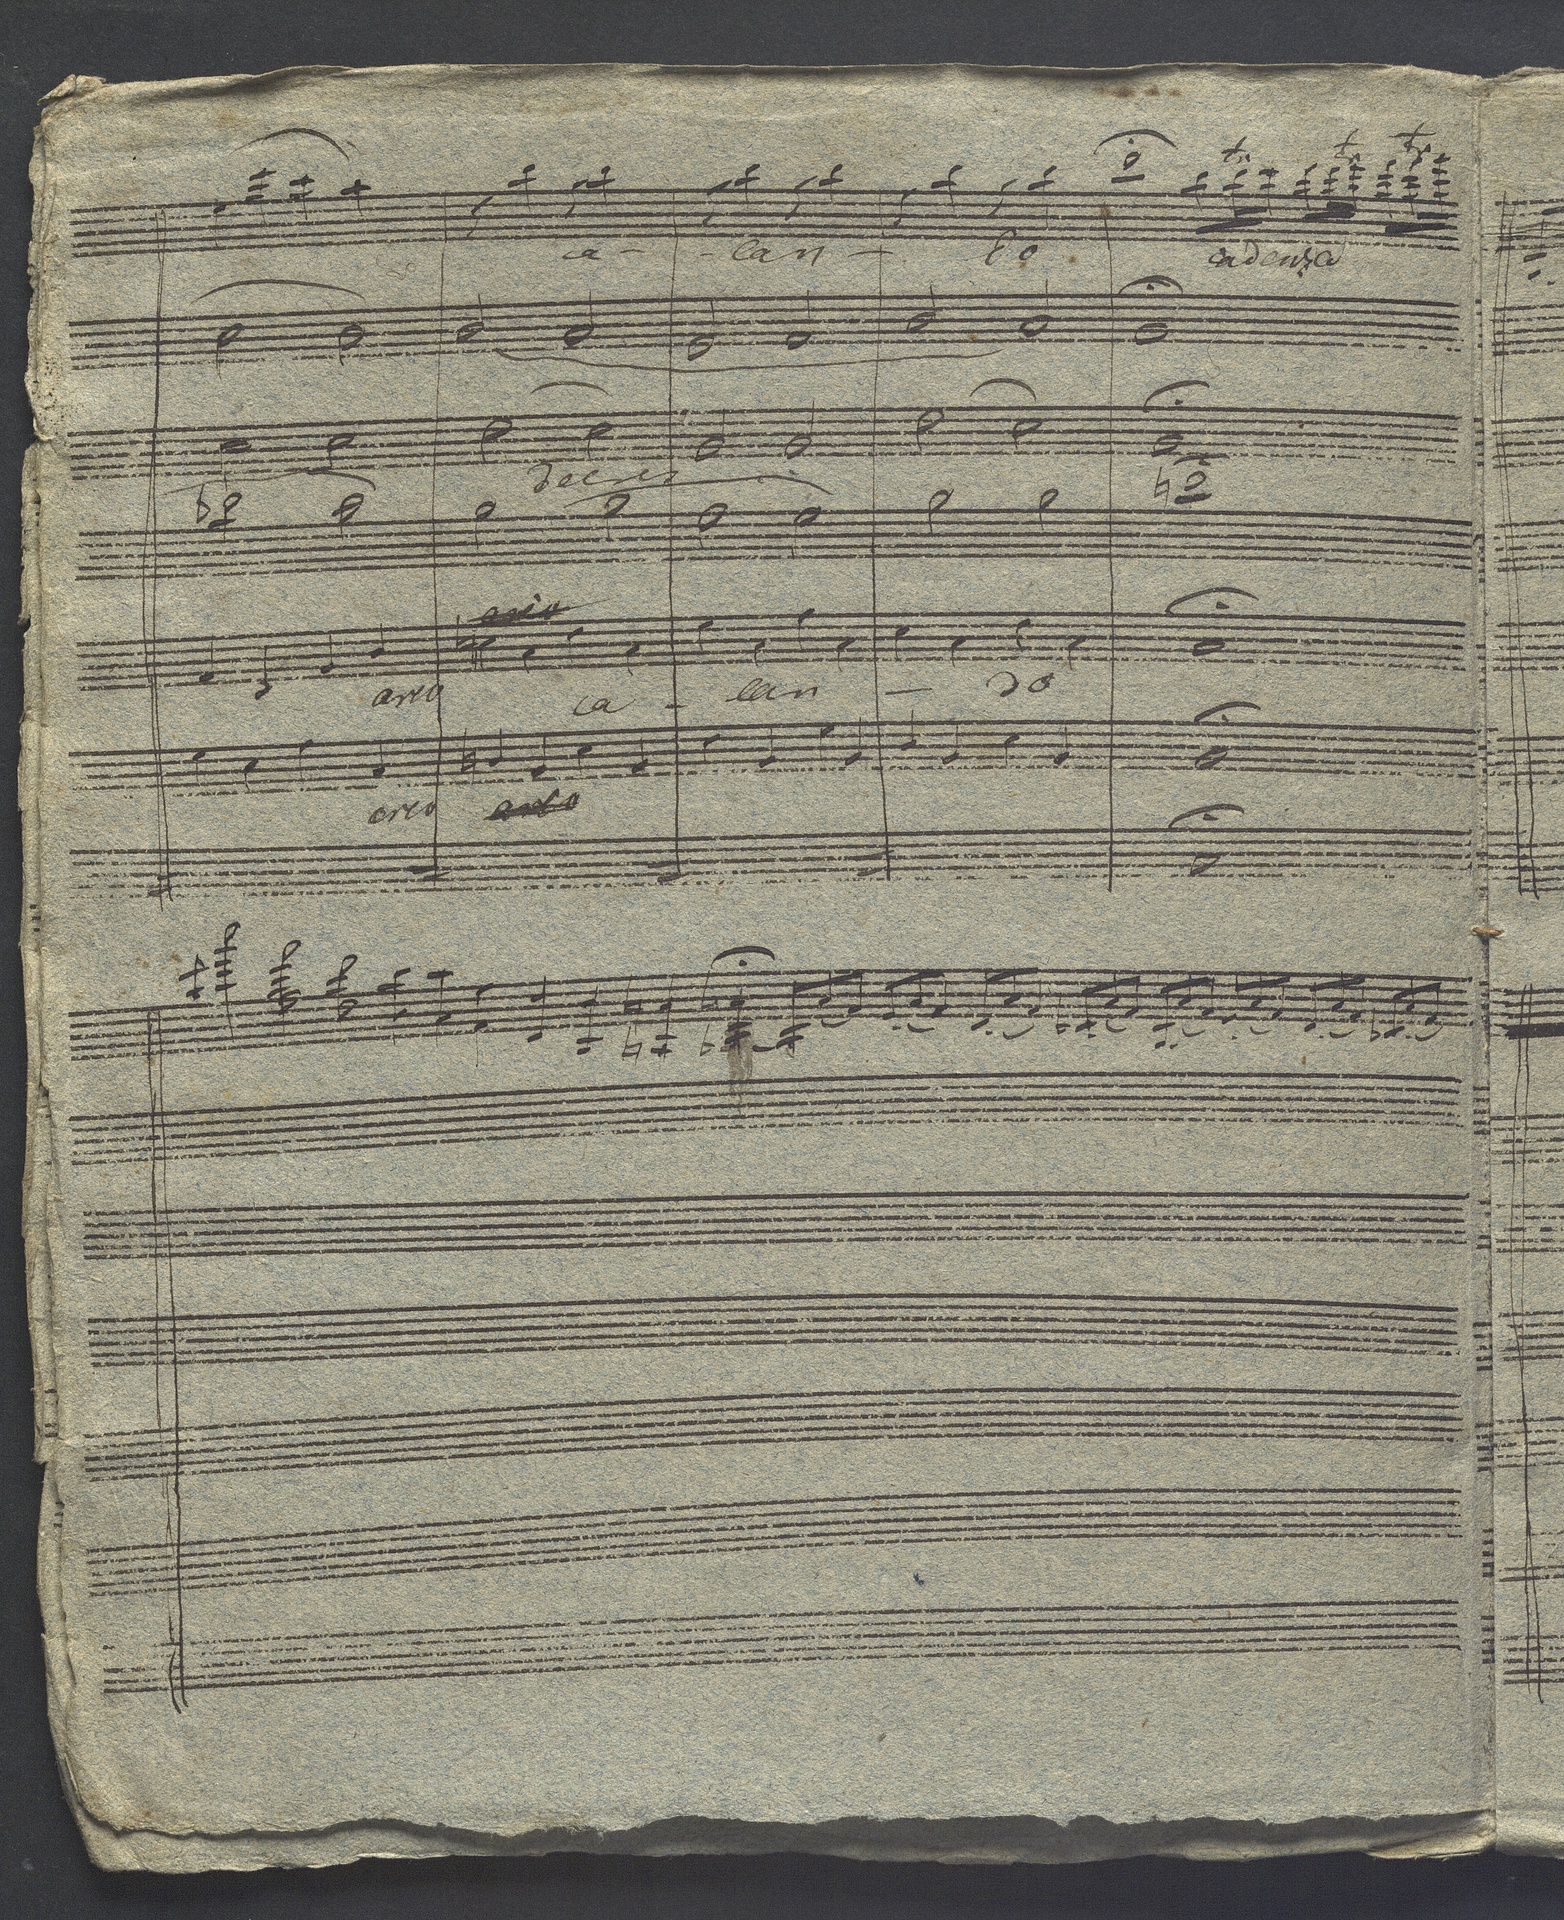 tr tr tr
ca - - lan - do cadenza
decres
arco
arco ca - lan - do
arco arco